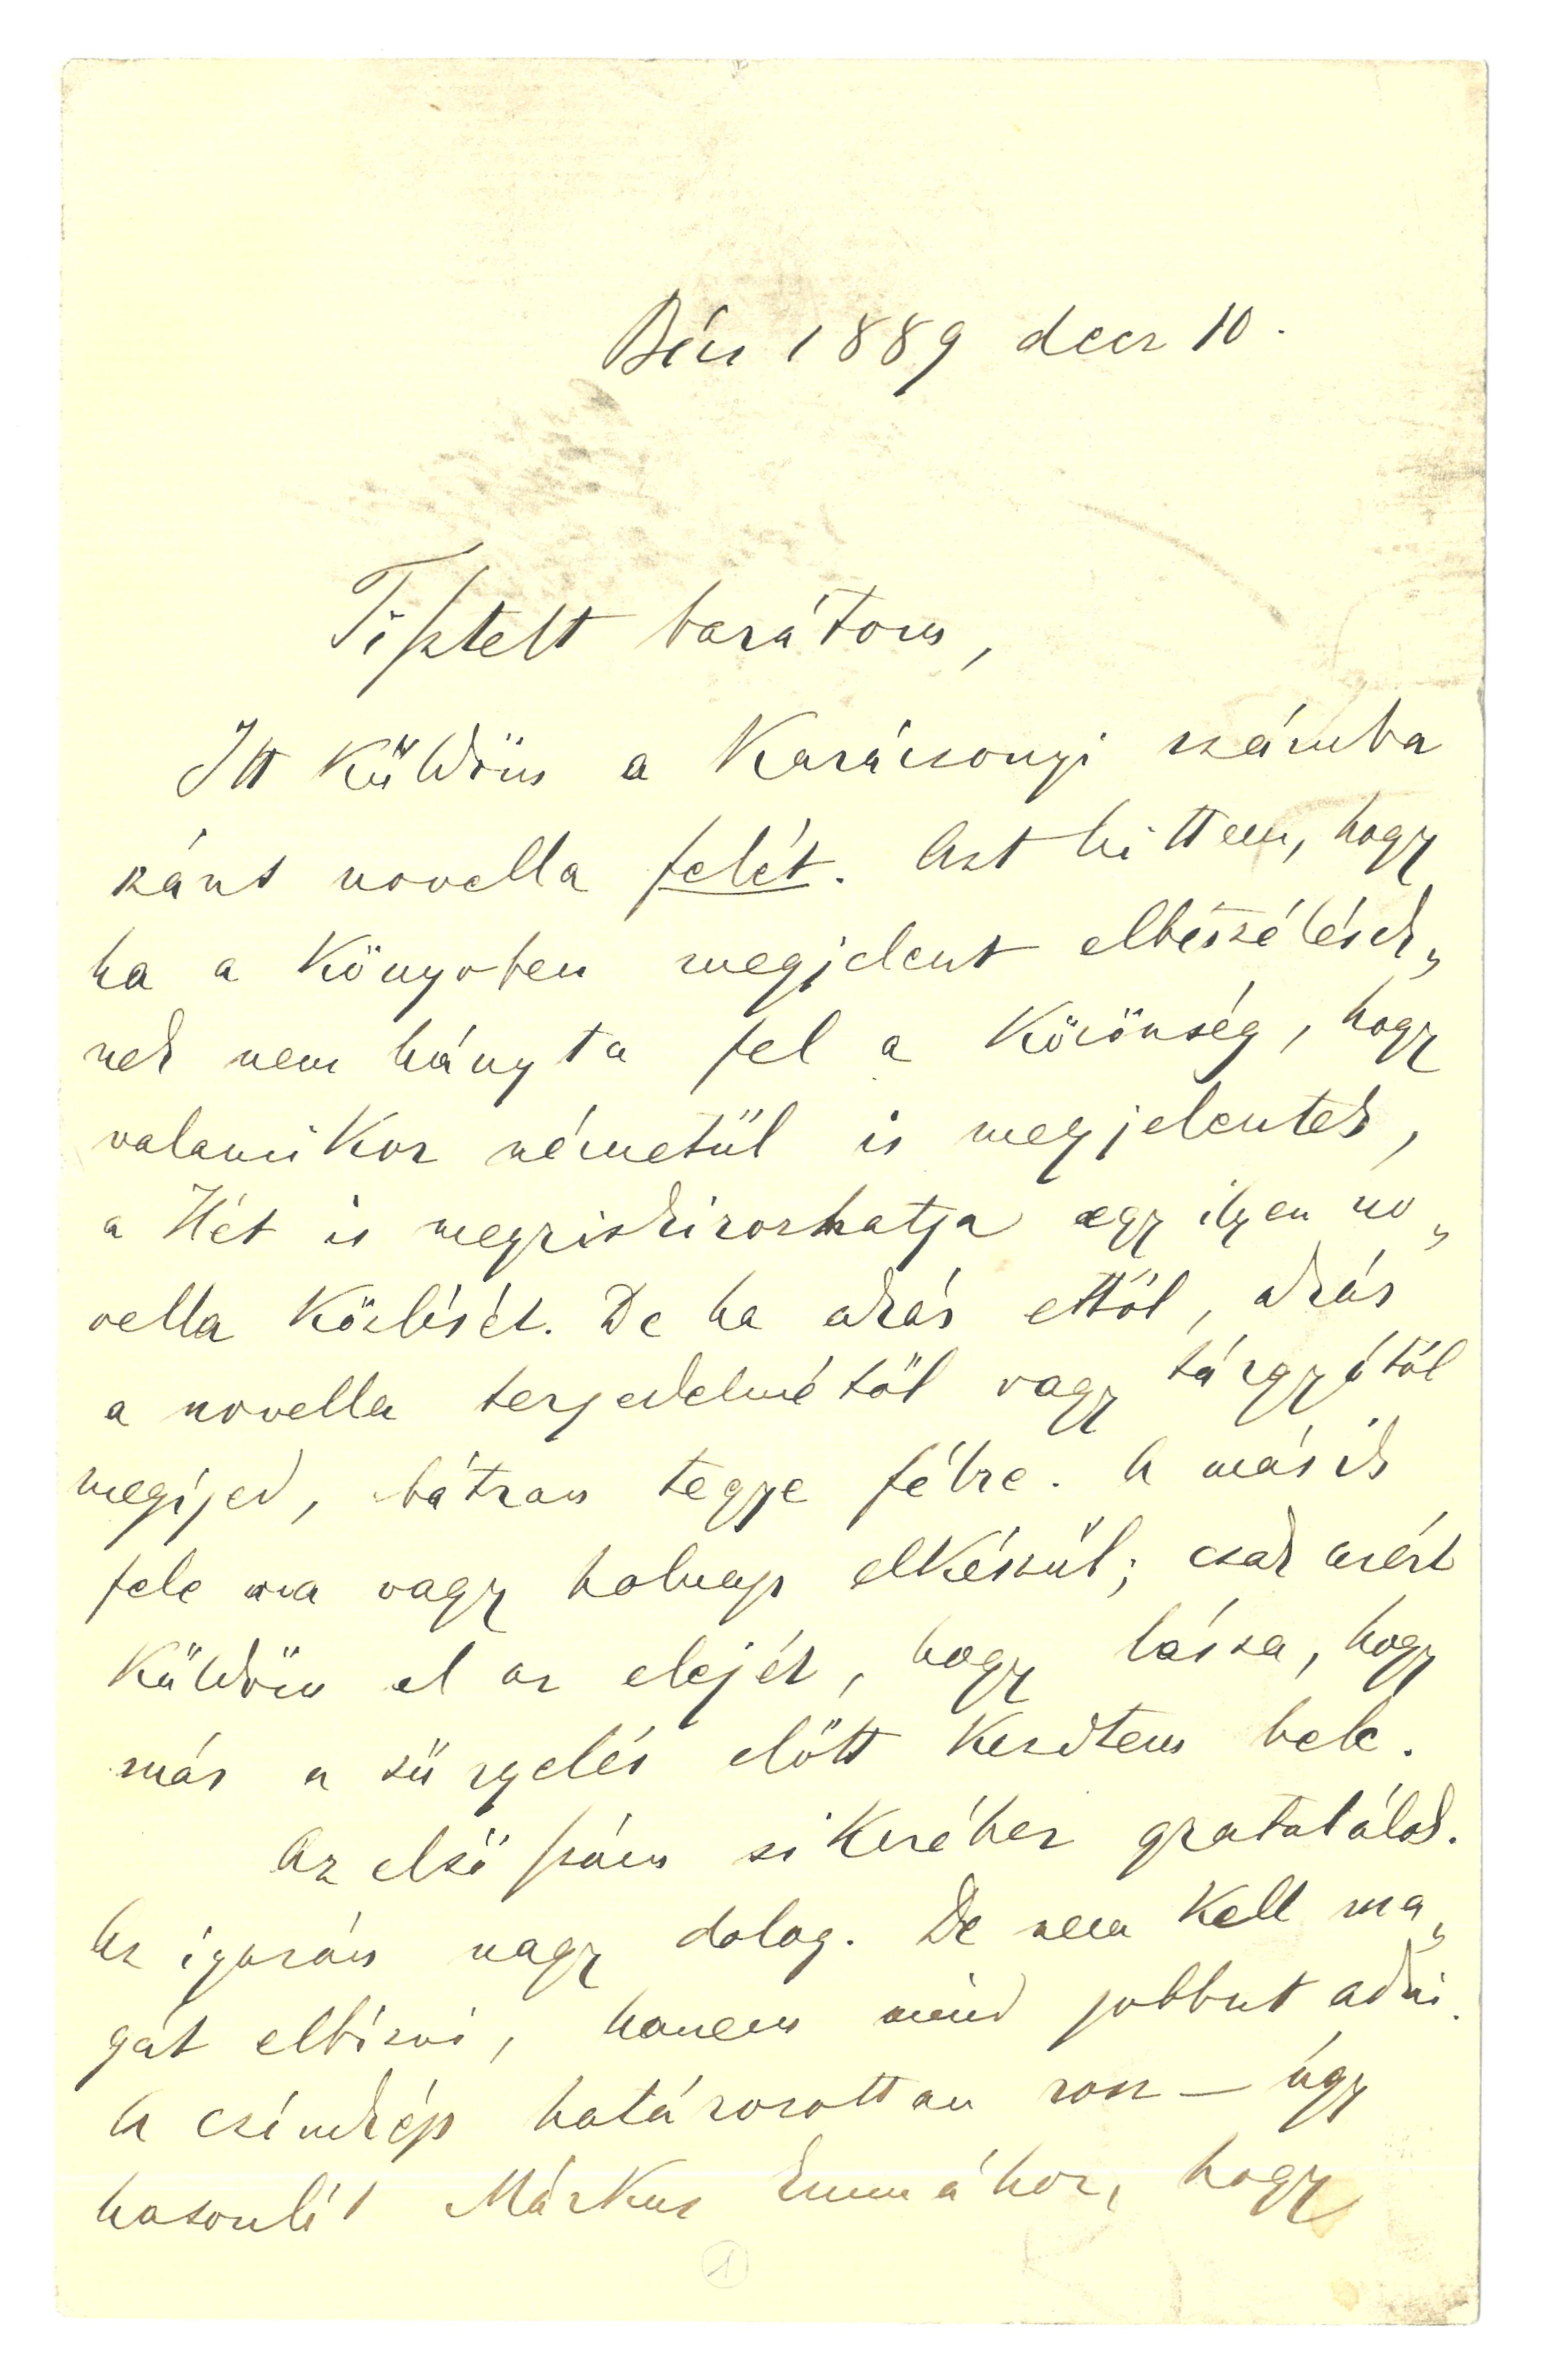 Bécs 1889 decz 10.
Tisztelt barátom,
Itt küldöm a Karácsonyi számba
szánt novella felét. Azt hittem, hogy
ha a könyvben megjelent elbeszélések„
nek nem hányta fel a közönség, hogy
valamikor németül is megjelentek,
a Hét is megriskirozhatja egy ilyen no„
vella közlését. De ha akár ettől, akár
a novella terjedelmétől vagy tárgyától
megijed, bátran tegye félre. A másik
fele ma vagy holnap elkészül; csak azért
küldöm el az elejét, hogy lássa, hogy
már a sürgelés előtt kezdtem bele.
Az első szám sikeréhez gratulálok.
Az igazán nagy dolog. De nem kell ma„
gát elbízni, hanem mind jobbat adni.
A czímkép határozottan rossz — úgy
hasonlít Márkus Emmához, hogy
1